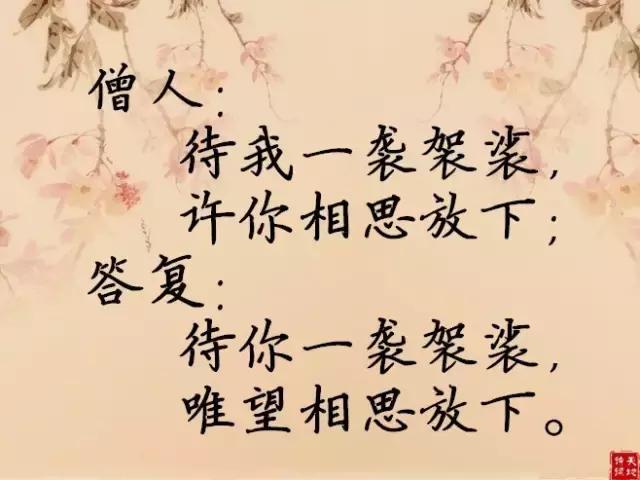 僧人：
待我一袭袈裟，
许你相思放下；
答复：
待你一袭袈裟，
唯望相思放下。